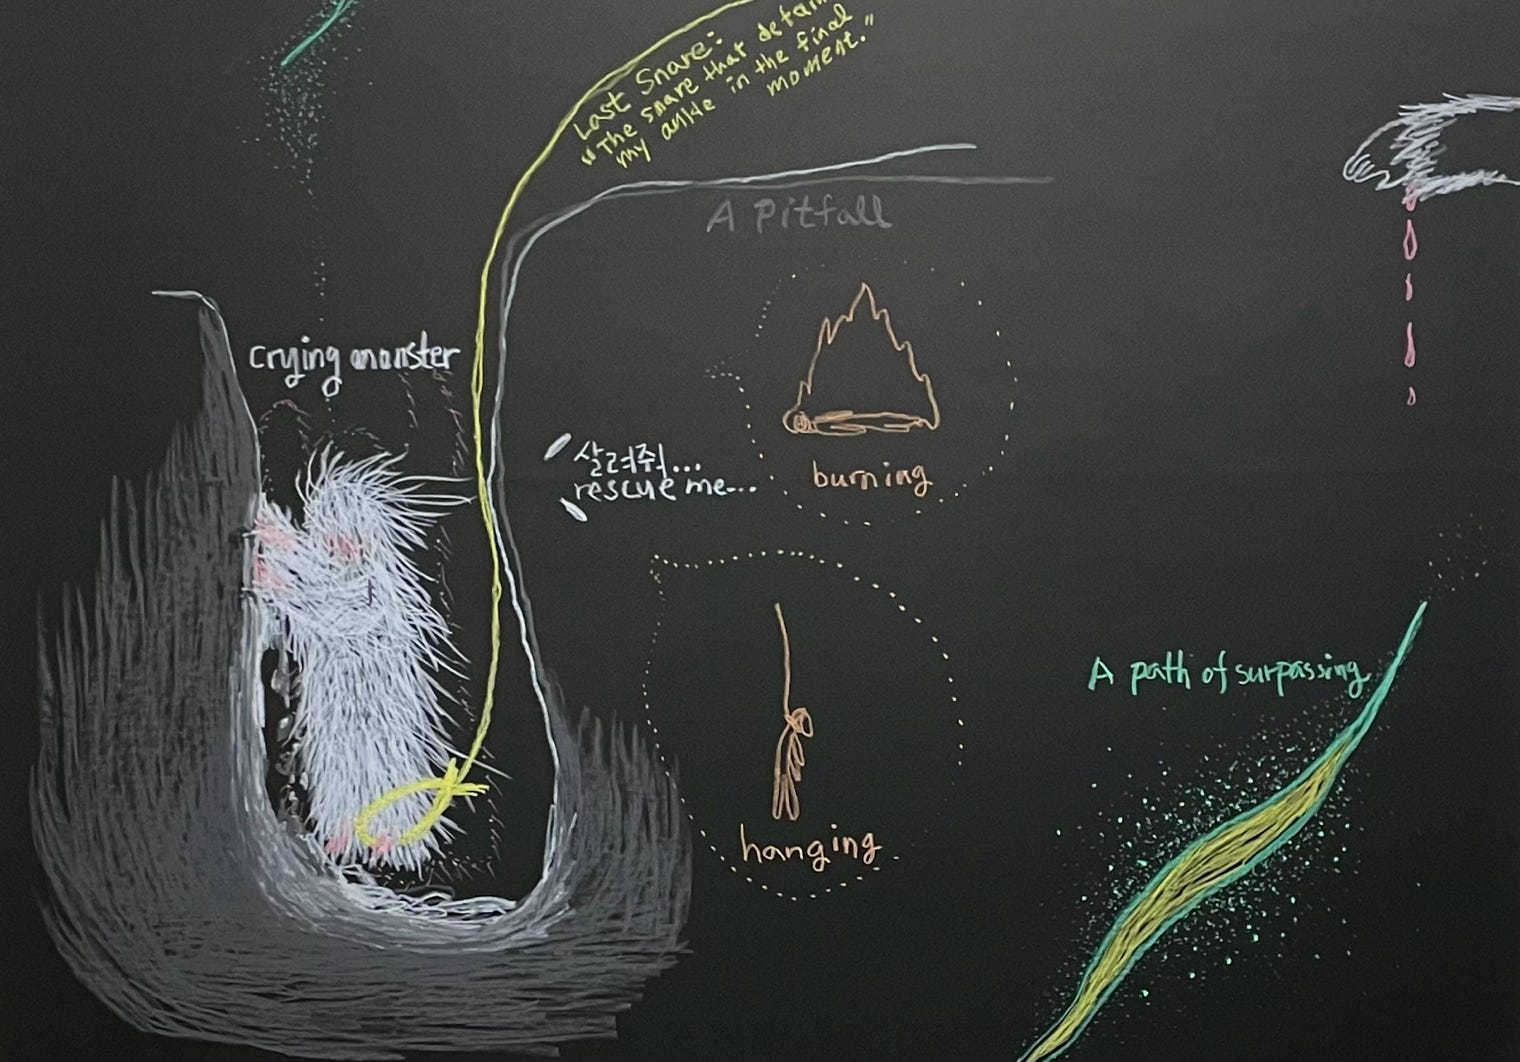 Last Snare:
"The snare that detain
my ankle in the final
moment."
A Pitfall
crying monster
살려줘...
rescue me...
burning
hanging
A path of surpassing